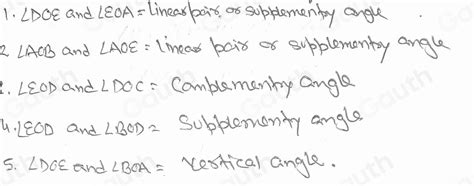 1. ∠DOE and ∠EOA = linear pair, or supplementry angle
2. ∠AOB and ∠AOE = linear pair or supplementry angle
3. ∠EOD and ∠DOC = Complementry Angle
4. ∠EOD and ∠BOD = Supplementry angle
5. ∠DOE and ∠BOA = Vertical angle.